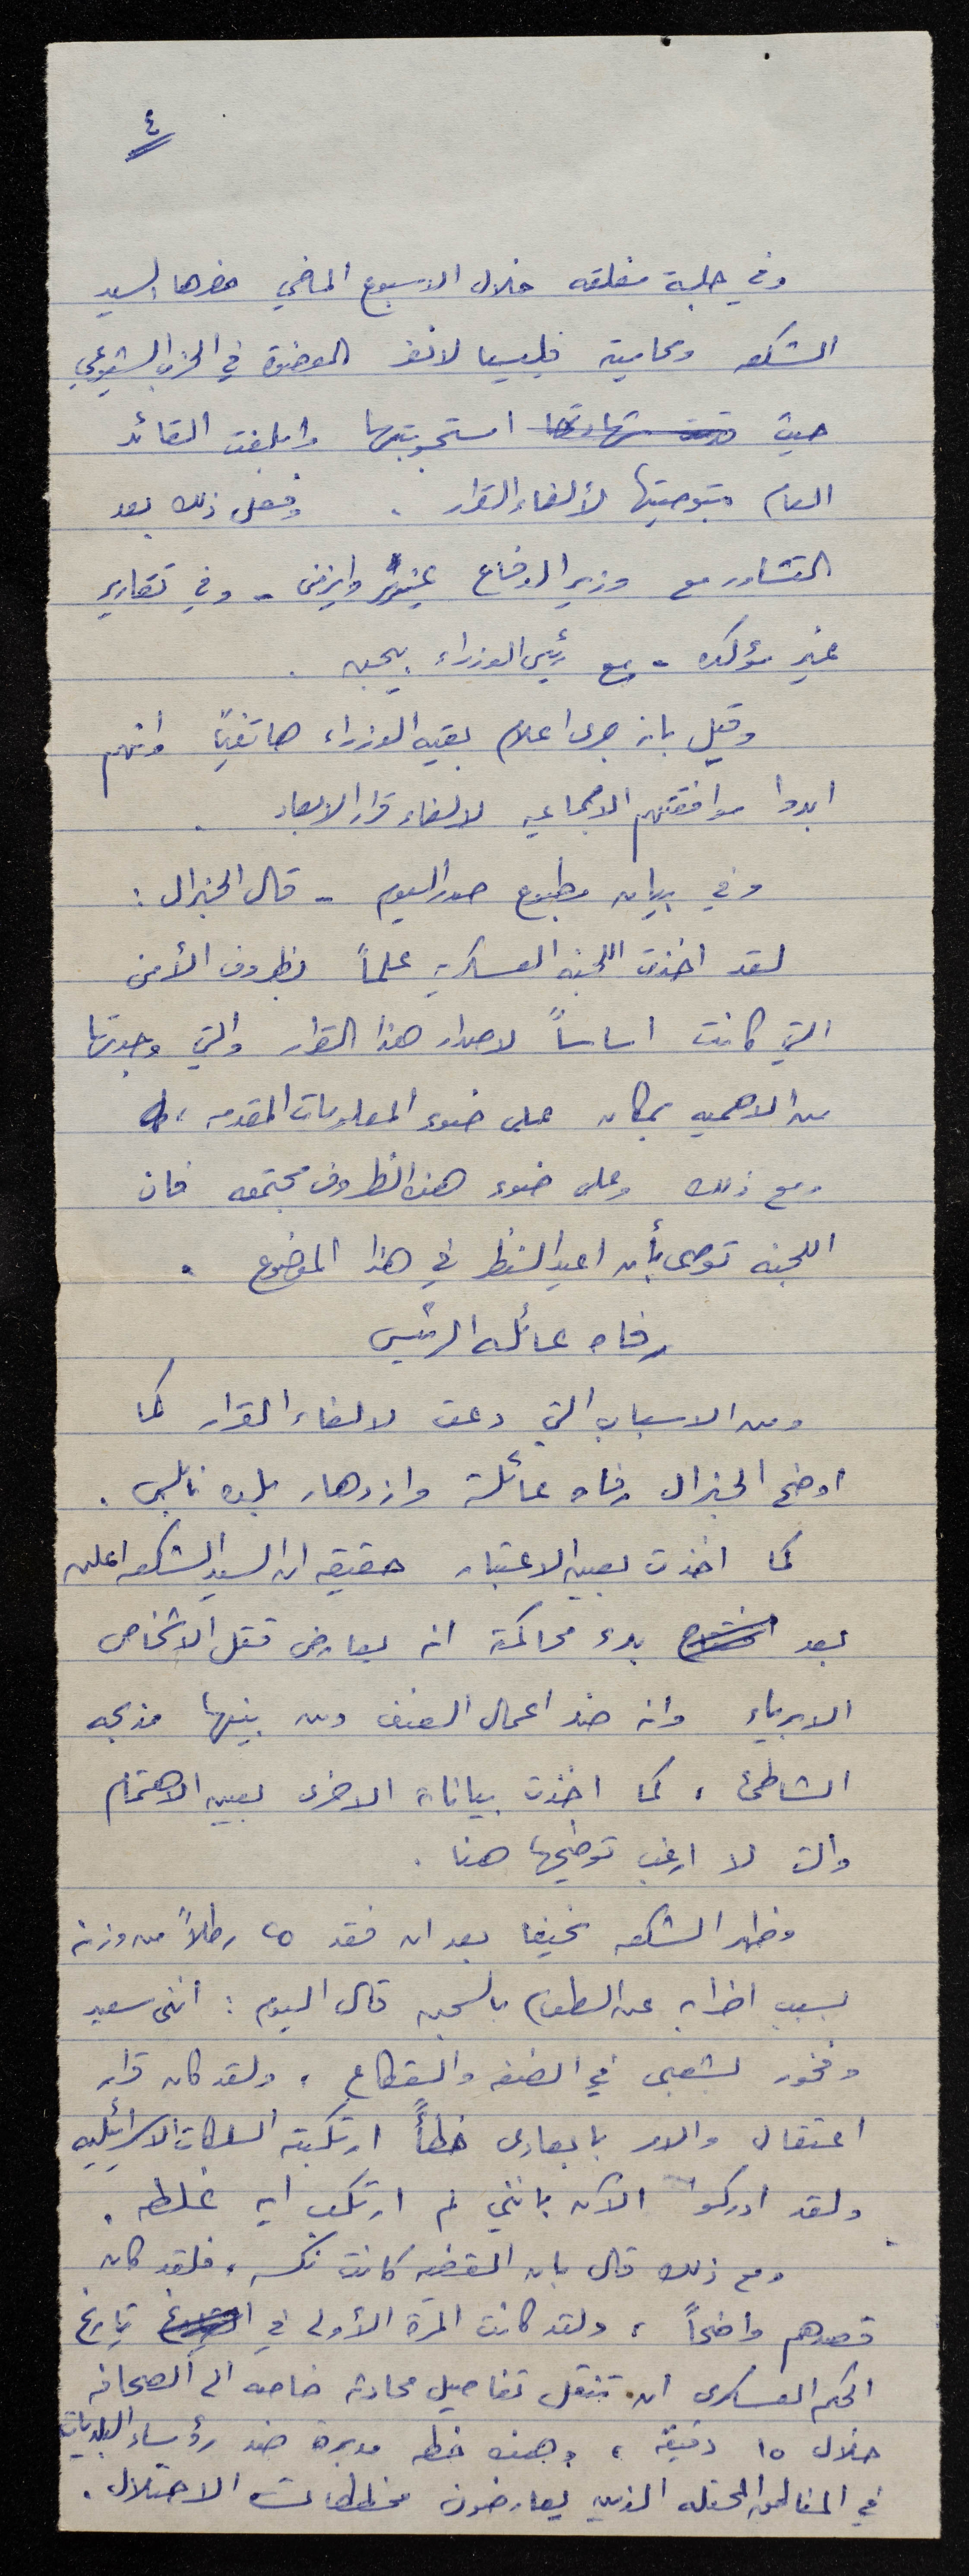 ٤
وفي جلسة مغلقه خلال الاسبوع الماضي حضرها السيد
الشكعه ومحاميته فليسيا لانغر العضوة في الحزب الشيوعي
حيث استجوبتها وابلغت القائد
العام بتوصيتها لألغاء القرار . وفعل ذلك بعد
التشاور مع وزير الدفاع عيزر وايزمن - وفي تقارير
غير مؤكده - مع رئيس الوزراء بيجن .
وقيل بانه جرى اعلام بقيه الوزراء هاتفياً وانهم
ابدوا موافقتهم الاجماعيه لالغاء قرار الابعاد .
وفي بيان مطبوع صدر اليوم - قال الجنرال :
لقد اخذت اللجنه العسكريه علماً بظروف الأمن
التي كانت اساساً لاصدار هذا القرار والتي وجدتها
من الاهميه بمكان على ضوء المعلومات المقدمه ،
ومع ذلك وعلى ضوء هذه الظروف مجتمعه فان
اللجنه توصى بأن اعيد النظر في هذا الموضوع .
رفاه عائلة الرئيس
ومن الاسباب التي دعت لالغاء القرار كما
اوضح الجنرال رفاه عائلته وازدهار بلده نابلس .
كما اخذت بعين الاعتبار حقيقه ان السيد الشكعه اعلن
بعد بدء محاكمته انه يعارض قتل الاشخاص
الابرياء وانه ضد اعمال العنف ومن بينها مذبحه
الشاطئ ، كما اخذت بياناته الاخرى بعين الاهتمام
والتي لا ارغب توضيحها هنا .
وظهر الشكعه نحيفا بعد ان فقد ٢٥ رطلاً من وزنه
بسبب اضرابه عن الطعام بالسجن قال اليوم : انني سعيد
وفخور لشعبى في الضفه والقطاع ، ولقد كان قرار
اعتقالى والامر بابعادى خطأً ارتكبته السلطات الاسرائيليه
ولقد ادركوا الآن بانني لم ارتكب ايه غلطه .
ومع ذلك قال بان القضيه كانت نكسه ، فلقد كان
قصدهم واضحاً ، ولقد كانت المرة الأولى في تاريخ
الحكم العسكرى ان تنقل تفاصيل محادثه خاصه الى الصحافه
خلال ١٥ دقيقه ، وهذه خطه مدبرة ضد رؤساء البلديات
في المناطق المحتله الذين يعارضون مخططات الاحتلال .